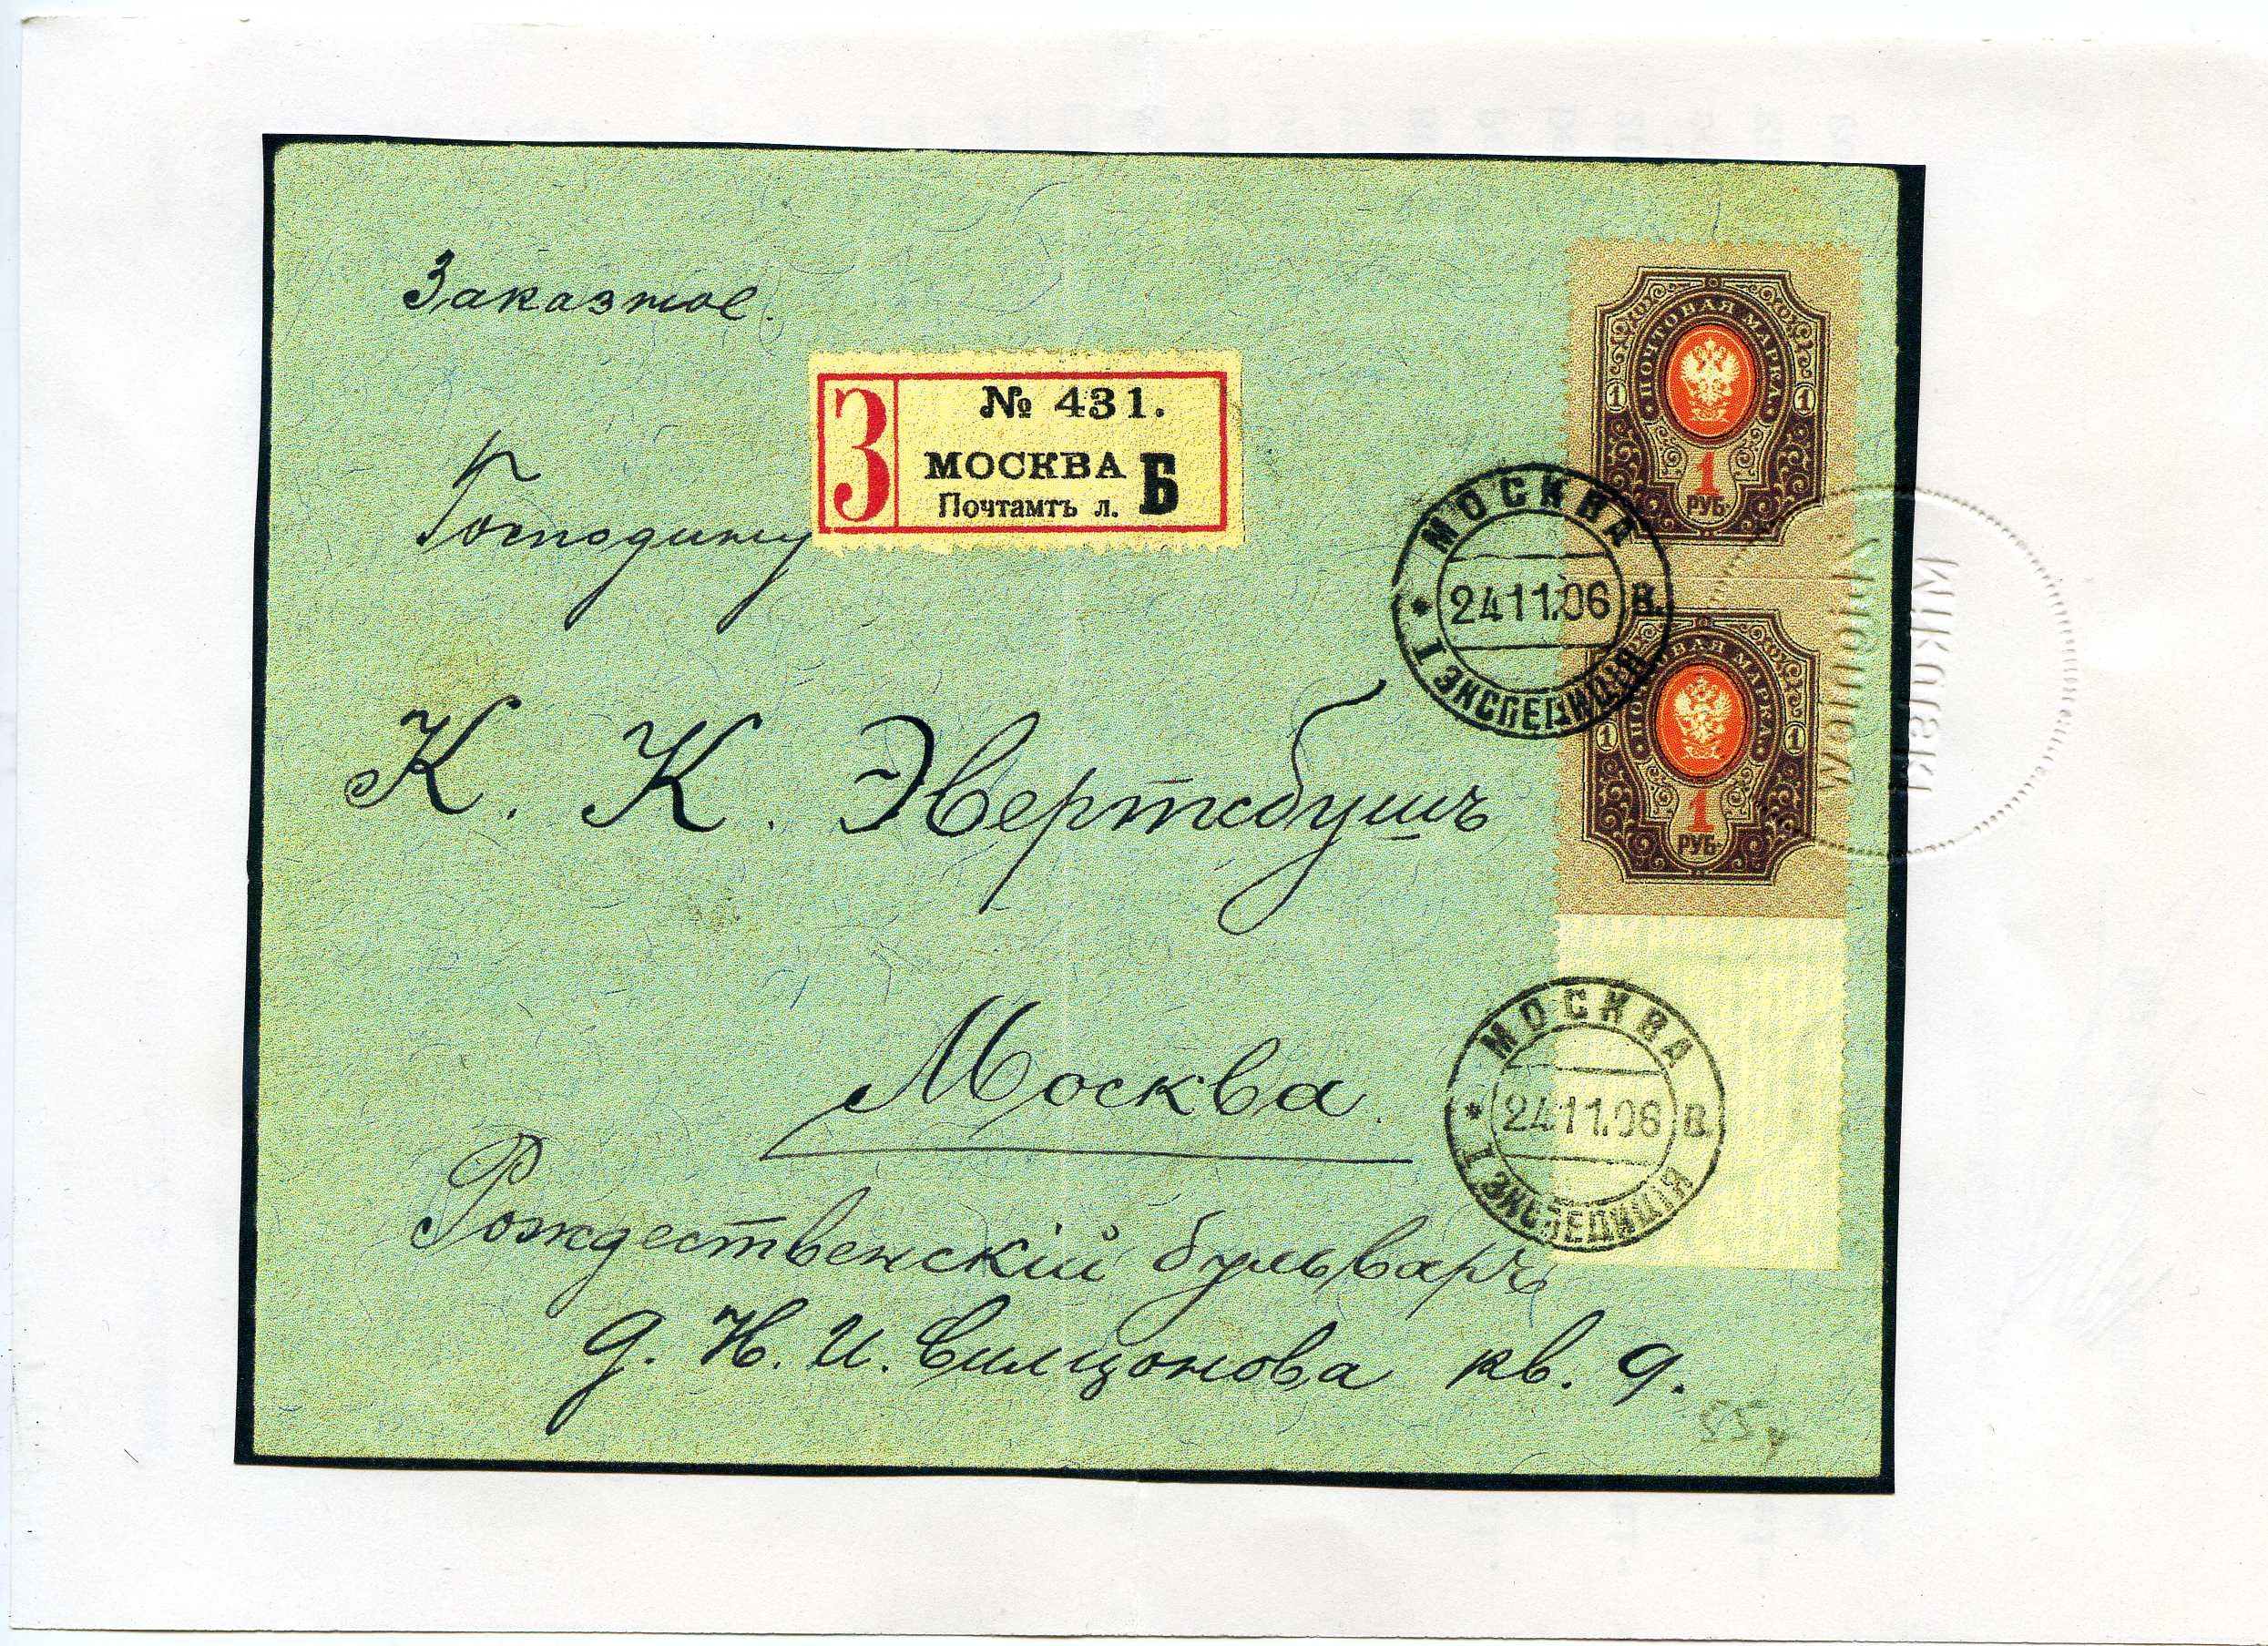 Заказное.
З
№ 431.
МОСКВА Б
Почтамтъ л.
Господину
К. К. Эвертсбушъ
Москва.
Рождественскій бульваръ
д. Н. И. кв. 9.
ПОЧТОВАЯ МАРКА
1 1
1
РУБ.
МОСКВА
24 11.06 В.
I ЭКСПЕДИЦІЯ
ПОЧТОВАЯ МАРКА
1 1
1
РУБ.
МОСКВА
24.11.06 В.
I ЭКСПЕДИЦІЯ
Mikulski